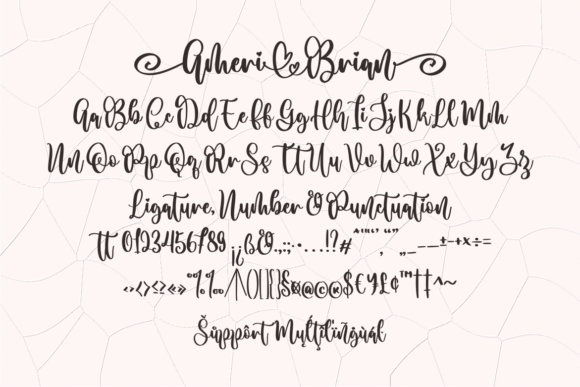 Ameri Brian
Aa Bb Cc Dd Ee Ff Gg Hh Ii Jj Kk Ll Mm
Nn Oo Pp Qq Rr Ss Tt Uu Vv Ww Xx Yy Zz
Ligature, Number & Punctuation
tt 0123456789 ¡¿ß&.,:;·•…!?# "'"‘’‚“”„_–—±-+x÷=
‹›<>≤≥«»°%‰/\()[]{}§¤@©®$€¥£¢™†‡^~
Šüppôrt Mulţilïñgùál